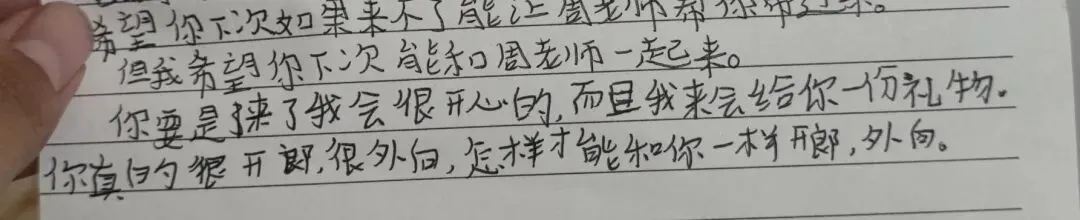 希望你下次如果来不了能让周老师帮你带过来。
但我希望你下次能和周老师一起来。
你要是来了我会很开心的,而且我来会给你一份礼物.
你真的很开郎,很外向,怎样才能和你一样开郎,外向。